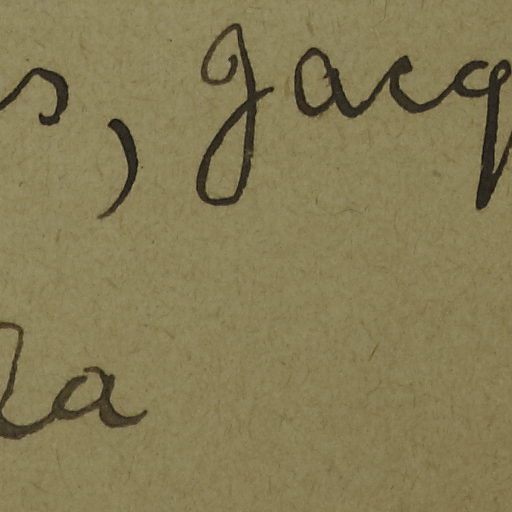 s, Jacq
la